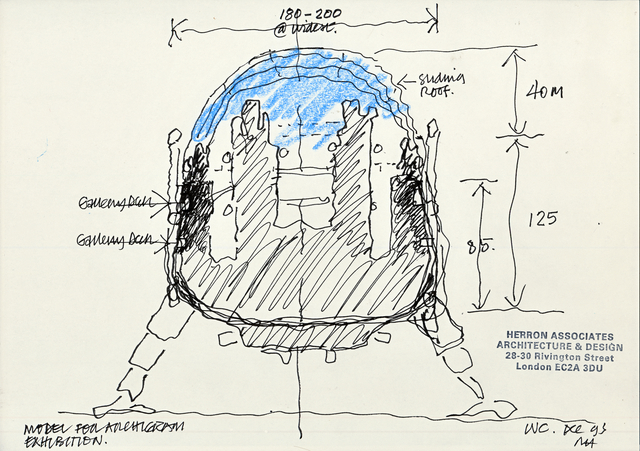 180-200
@ widest.
SLIDING
ROOF.
40M
Gallery Deck
Gallery Deck
125
85.
HERRON ASSOCIATES
ARCHITECTURE & DESIGN
28-30 Rivington Street
London EC2A 3DU
MODEL FOR ARCHIGRAM
EXHIBITION.
WC. Dec 93